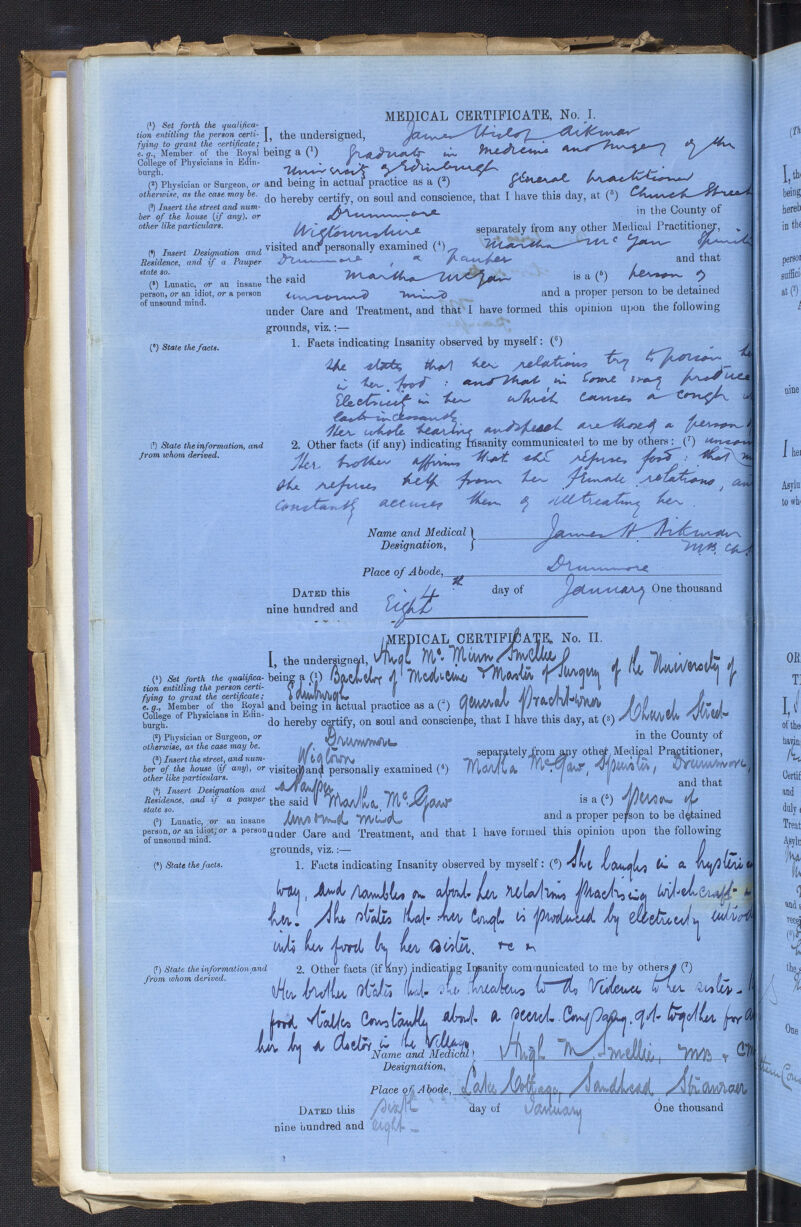 MEDICAL CERTIFICATE, No. I.
(¹) Set forth the qualifica-
tion entitling the person certi-
fying to grant the certificate;
e.g., Member of the Royal
College of Physicians in Edin-
burgh.
(²) Physician or Surgeon, or
otherwise, as the case may be.
(³) Insert the street and num-
ber of the house (if any), or
other like particulars.
(⁴) Insert Designation and
Residence, and if a Pauper
state so.
(⁵) Lunatic, or an insane
person, or an idiot, or a person
of unsound mind.
I, the undersigned, James Hislop Aikman
being a (¹) graduate in medicine and surgery of the
University of Edinburgh
and being in actual practice as a (²) general practitioner
do hereby certify, on soul and conscience, that I have this day, at (³) Church Street
Drummore in the County of
Wigtownshire separately from any other Medical Practitioner,
visited and personally examined (⁴) Martha McGaw
Drummore, a pauper and that
the said Martha McGaw is a (⁵) person of
unsound mind and a proper person to be detained
under Care and Treatment, and that I have formed this opinion upon the following
grounds, viz.:—
(⁶) State the facts.
1. Facts indicating Insanity observed by myself: (⁶)
She states that her relations try to poison
in her food: and that, in some way produce
Electricity in her which causes a cough
lasts incessantly
Her whole bearing and speech are those of a person
(⁷) State the information, and
from whom derived.
2. Other facts (if any) indicating Insanity communicated to me by others: (⁷)
Her brother affirms that she refuses food: that
she refuses help from her female relations, and
constantly accuses them of illtreating her.
Name and Medical
Designation,
James H. Aikman
M.B. Ch.
Place of Abode, Drummore
DATED this 4th day of January One thousand
nine hundred and Eight
MEDICAL CERTIFICATE, No. II.
(¹) Set forth the qualifica-
tion entitling the person certi-
fying to grant the certificate;
e.g., Member of the Royal
College of Physicians in Edin-
burgh.
(²) Physician or Surgeon, or
otherwise, as the case may be.
(³) Insert the street, and num-
ber of the house (if any), or
other like particulars.
(⁴) Insert Designation and
Residence, and if a pauper
state so.
(⁵) Lunatic, or an insane
person, or an idiot, or a person
of unsound mind.
I, the undersigned, Hugh McMinn Smellie
being a (¹) Bachelor of Medicine & Master of Surgery of the University of
Edinburgh
and being in actual practice as a (²) general Practitioner
do hereby certify, on soul and conscience, that I have this day, at (³) Church Street
Drummore in the County of
Wigtown separately from any other Medical Practitioner,
visited and personally examined (⁴) Martha McGaw, Spinster, Drummore,
a Pauper and that
the said Martha McGaw is a (⁵) person of
unsound mind and a proper person to be detained
under Care and Treatment, and that I have formed this opinion upon the following
grounds, viz.:—
(⁶) State the facts.
1. Facts indicating Insanity observed by myself: (⁶) She laughs in a
way, and rambles on about her relations practising witchcraft
her. She states that her cough is produced by electricity
into her food by her sister. &c
(⁷) State the information and
from whom derived.
2. Other facts (if any) indicating Insanity communicated to me by others (⁷)
Her brother states that she threatens to do violence to her sister
food & talks constantly about a secret Company got together for
her by a doctor in the village
Name and Medical
Designation,
Hugh M Smellie, MB & CM
Place of Abode, Lake Cottage, Sandhead Stranraer
DATED this sixth day of January One thousand
nine hundred and eight